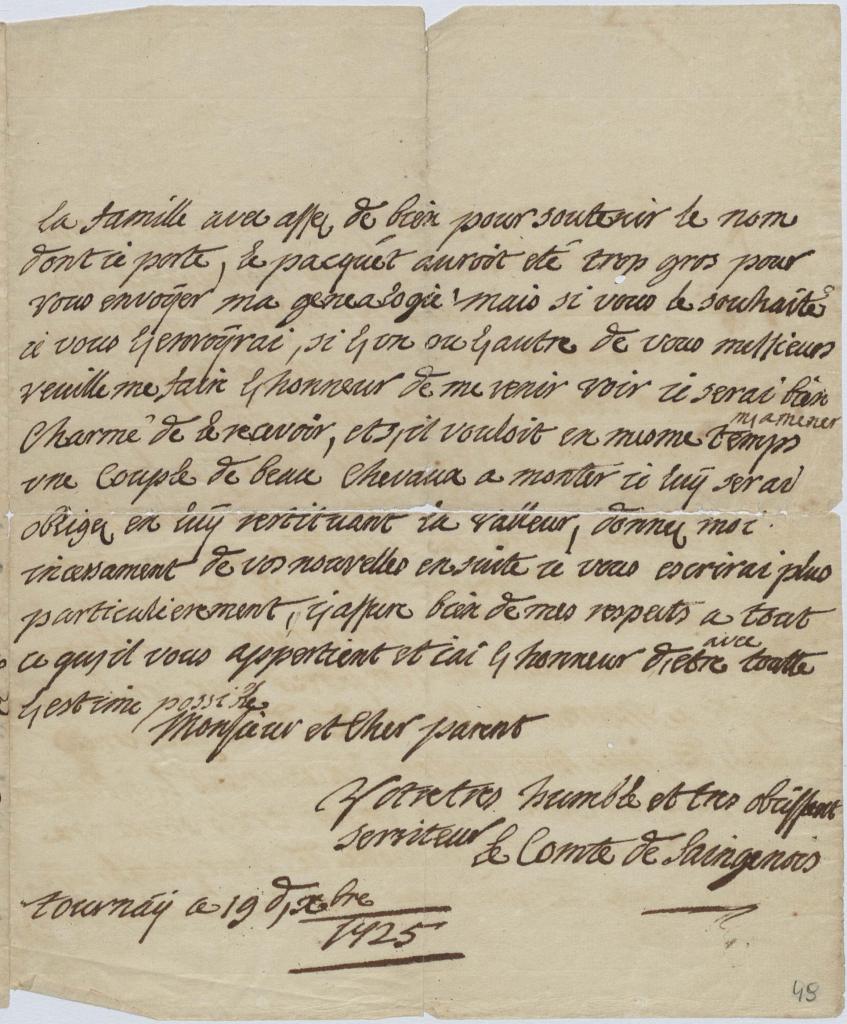 la famille avec assez de bien pour soutenir le nom
dont ie porte, le pacquét auroit eté trop gros pour
vous envoÿer ma genealogie mais si vous le souhaité
ie vous l'envoÿrai, si l'un ou l'autre de vous messieurs
veuille me faire l'honneur de me venir voir ie serai bien
Charmé de le recevoir, et s'il vouloit en mesme temps m'amener
une Couple de beau Chevaux a monter ie luÿ serai
obligez en luÿ restituant la valleur, donnez moi
incessament de vos nouvelles en suite ie vous escrirai plus
particulierement, i'assure bien de mes respects a tout
ce qu'il vous appertient et iai l'honneur d'etre avec toutte
l'estime possible
Monsieur et Cher parent
Votre tres humble et tres obeissent
serviteur
le Comte de Saingenois
tournaÿ ce 19 d'xbre
1725
49